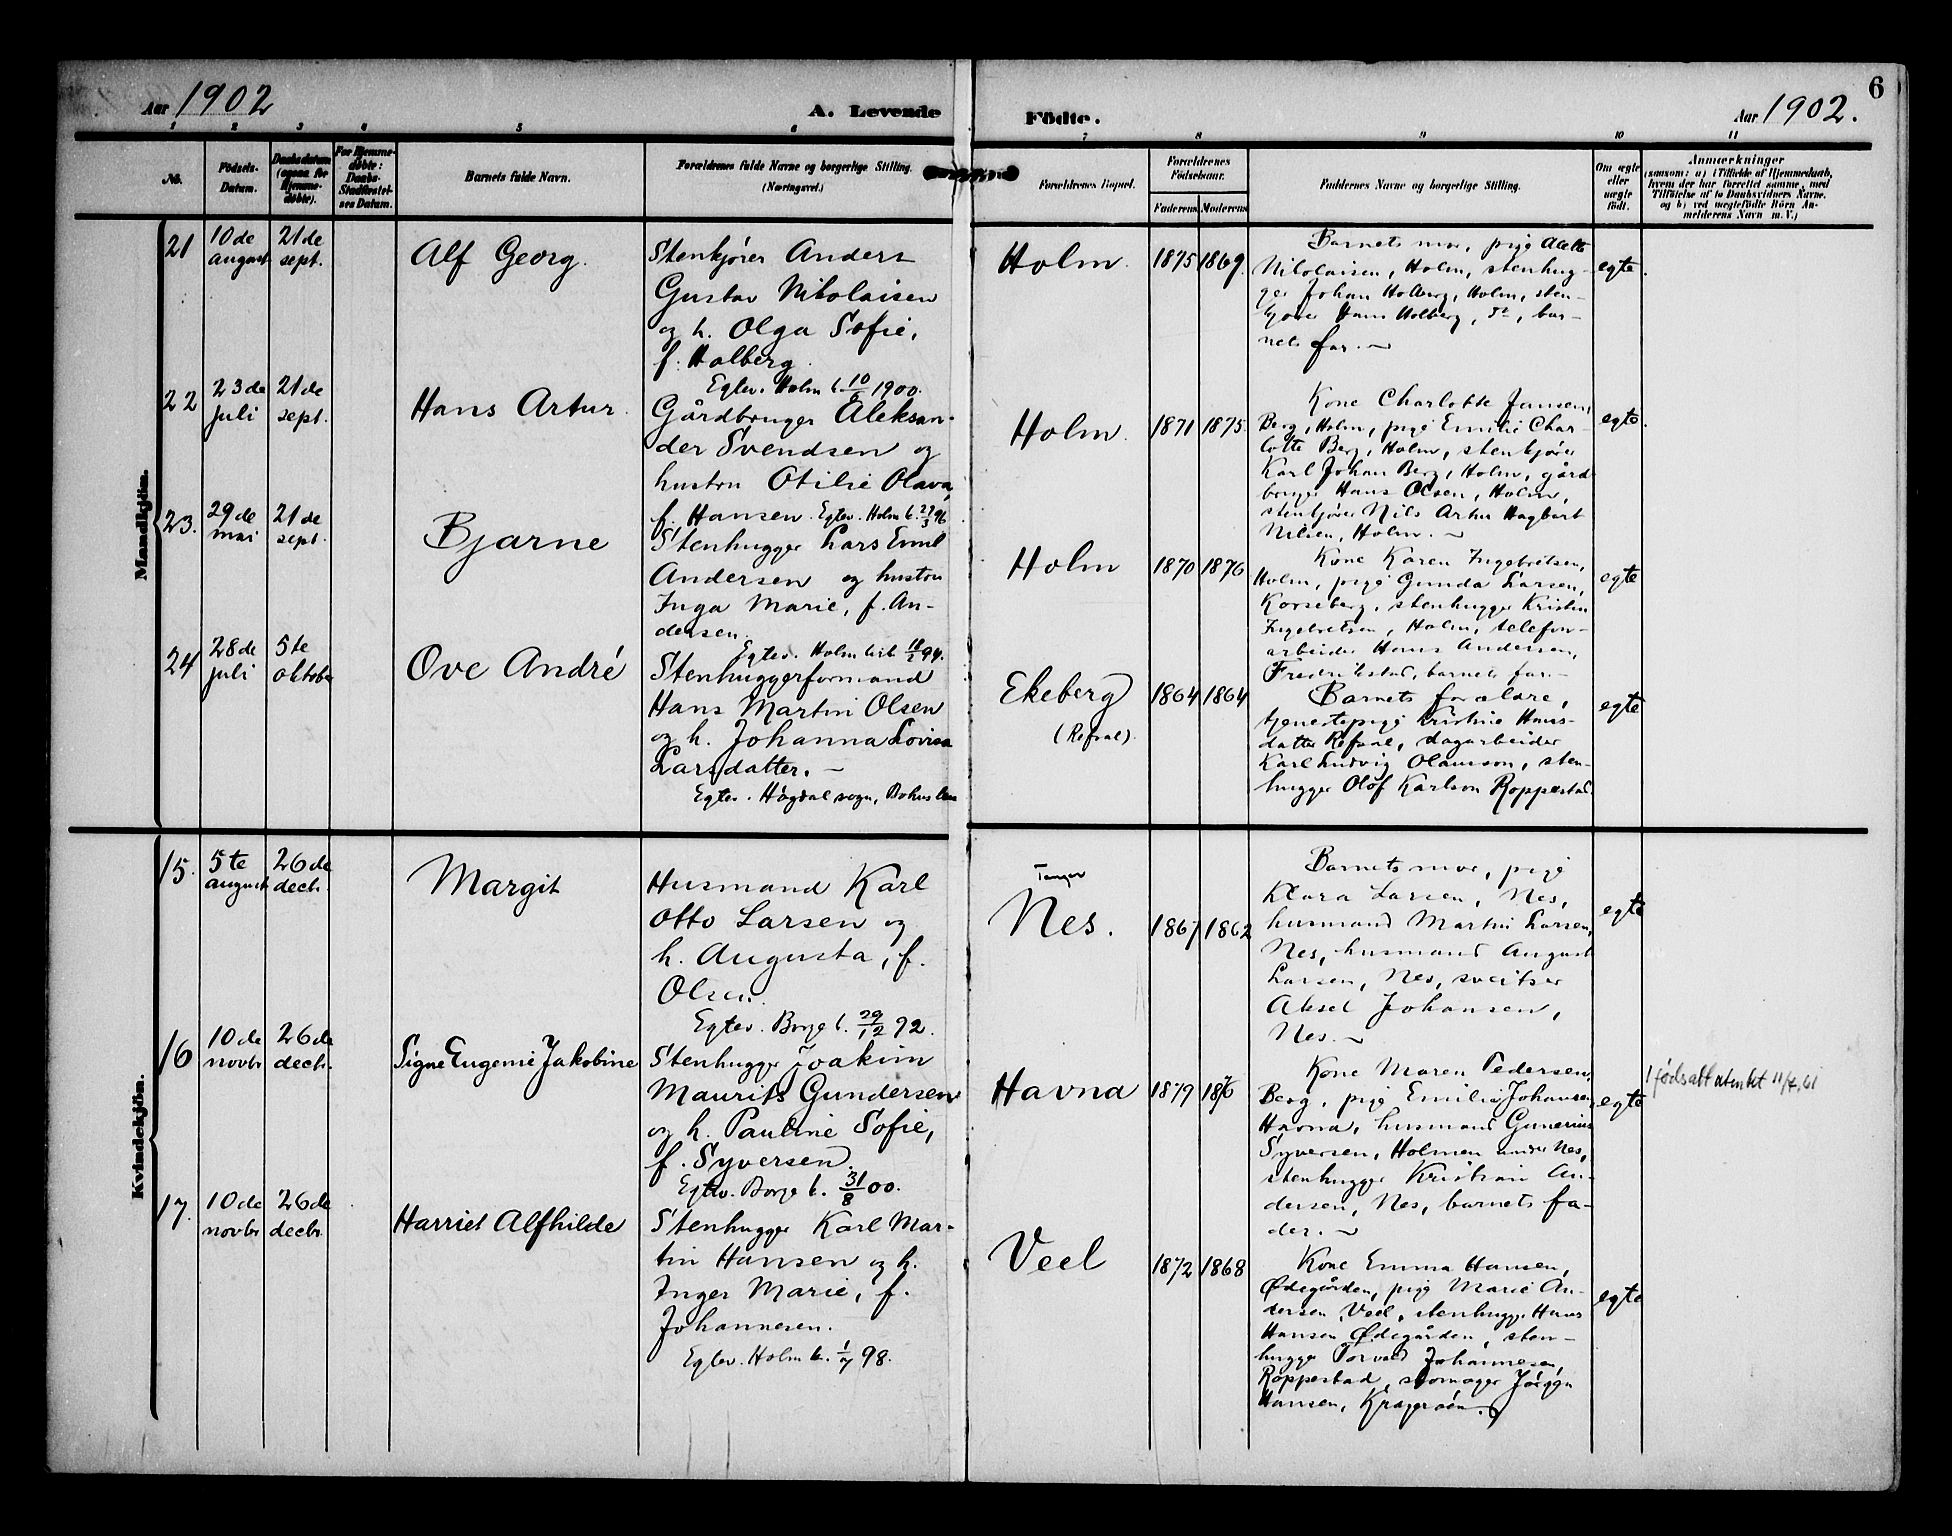 6
Aar 1902
A. Levende
Födte.
Aar 1902.
1 2 3 4 5 6 7 8 9 10 11
No.
Födsels-
Datum.
Daabsdatum
(ogsaa for
Hjemme-
döbte).
For Hjemme-
döbte:
Daabs-
Stadfæstel-
ses Datum.
Barnets fulde Navn.
Forældrenes fulde Navne og borgerlige Stilling.
(Næringsvei.)
Forældrenes Bopæl.
Forældrenes
Födselsaar.
Faderens
Moderens
Faddernes Navne og borgerlige Stilling.
Om ægte
eller
uægte
födt.
Anmærkninger
(saasom: a) i Tilfælde af Hjemmedaab,
hvem der har forrettet samme, med
Tilföielse af to Daabsvidners Navne,
og b) ved uægtefödte Börn An-
melderens Navn m. V.)
Mandkjön.
21
10de
august
21de
sept.
Alf Georg.
Stenkjører Anders
Gustav Nikolaisen
og h. Olga Sofie,
f. Holberg.
Egtev. Holm k. 10/6 1900.
Holm.
1875
1869.
Barnets mor, pige Aette
Nikolaisen, Holm, stenhug-
ger Johan Holberg, Holm, sten-
kjører Hans Holberg, do, bar-
nets far. —
egte.
22
23de
juli
21de
sept.
Hans Artur.
Gårdbruger Aleksan-
der Svendsen og
hustru Otilie Olava,
f. Hansen. Egtev. Holm k. 27/3 96
Holm.
1871
1875.
Kone Charlotte Jansen,
Berg, Holm, pige Emilie Char-
lotte Berg, Holm, stenkjører
Karl Johan Berg, Holm, gård-
bruger Hans Olsen, Holm,
stenkjører Nils Artur Hagbart
Nilsen, Holm. —
egte.
23.
29de
mai
21de
sept.
Bjarne
Stenhugger Lars Emil
Andersen og hustru
Inga Marie, f. An-
dersen.
Egtev. Holm kirk 94.
Holm
1870
1876
Kone Karen Ingebretsen,
Holm, pige Gunda Larsen,
Korseberg, stenhugger Kristin
Ingebretsen, Holm, telefon-
arbeider Hans Andersen,
Frederikstad, barnets far. —
egte
24
28de
juli
5te
oktober
Ove André
Stenhuggerformand
Hans Martin Olsen
og h. Johanna Lovisa
Larsdatter. —
Egtev. Högdal sogn, Bohus län
Ekeberg
(Refsal).
1864
1864
Barnets forældre,
tjenestepige Kristine Hans-
datter Refsal, dagarbeider
Karl Ludvig Olausson, sten-
hugger Olof Karlson Roppestad.
egte
Kvindekjön.
15.
5te
august
26de
decbr.
Margit
Husmand Karl
Otto Larsen og
h. Augusta, f.
Olsen.
Egtev. Borge k. 29/12 92.
Tanger
Nes.
1867
1862
Barnets mor, pige
Klara Larsen, Nes,
husmand Martin Larsen,
Nes, husmand August
Larsen, Nes,
Aksel Johansen,
Nes. —
egte
16
10de
novbr
26de
decbr.
Signe Eugenie Jakobine
Stenhugger Joakim
Maurits Gundersen
og h. Pauline Sofie,
f. Syversen.
Egtev. Borge k. 31/8 00.
Havna
1879
Kone Maren Pedersen,
Berg, pige Emilie Johansen,
Havna, husmand Gunerius
Syversen, Holmen under Nes,
stenhugger Kristian An-
dersen, Nes, barnets fa-
der. —
egte
1 fødsattutentet 11/4.61
17.
10de
novbr
26de
decbr.
Harriet Alfhilde
Stenhugger Karl Mar-
tin Hansen og h.
Inger Marie, f.
Johannesen.
Egtev. Holm k. 1/7 98.
Veel
1872
1868
Kone Emma Hansen,
Ødegården, pige Marie An-
dersen Veel, stenhugger Hans
Hansen Ødegården, sten-
hugger Torvald Johannesen,
Roppestad, skomager Jörgen
Hansen, Krageröen.
egte